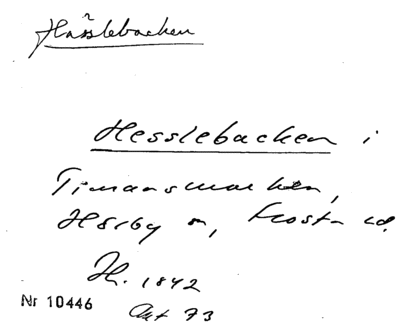 Hässlebacken
Hesslebacken i
Timansmarken,
Hörby sn, Frosta hd.
H. 1842
Nr 10446
Akt 73